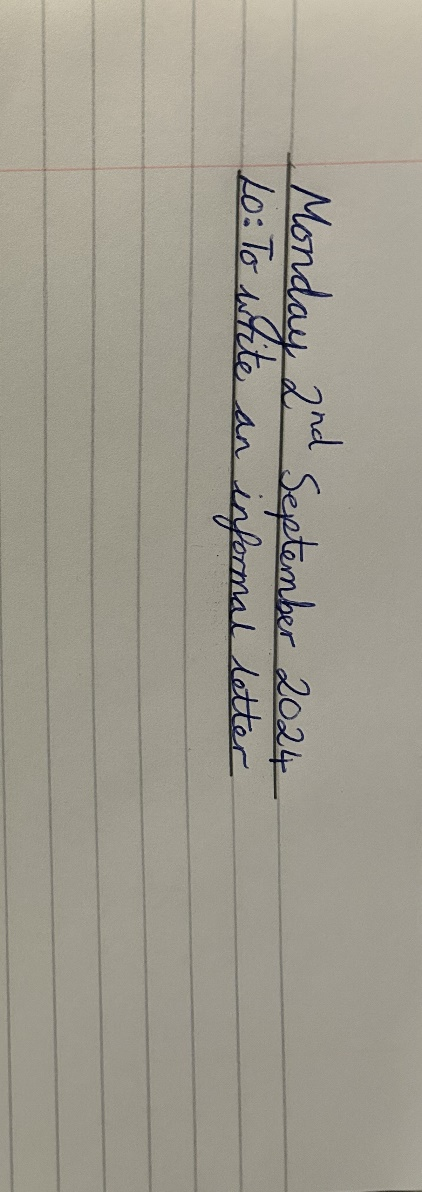 Monday 2nd September 2024
LO: To write an informal letter